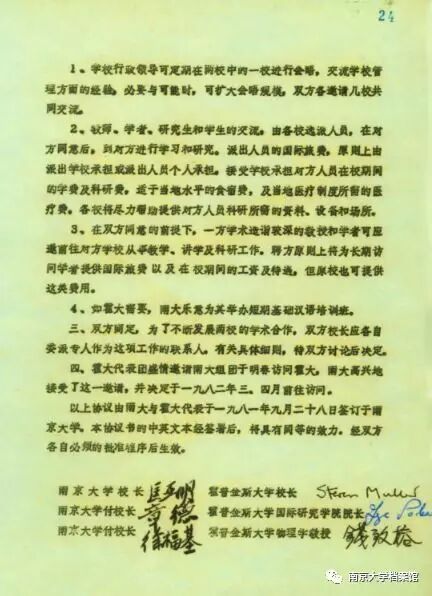 24
1、学校行政领导可定期在两校中的一校进行会晤，交流学校管
理方面的经验，必要与可能时，可扩大会晤规模，双方各邀请几校共
同交流。
2、教师、学者、研究生和学生的交流，由各校选派人员，在对
方同意后，到对方进行学习和研究。派出人员的国际旅费，原则上由
派出学校承担或派出人员个人承担。接受学校承担对方人员在校期间
的学费及科研费，适于当地水平的食宿费，及当地医疗制度所需的医
疗费。各校将尽力帮助提供对方人员科研所需的资料、设备和场所。
3、在双方同意的前提下，一方学术造诣较深的教授和学者可应
邀前往对方学校从事教学、讲学及科研工作。聘方原则上将为长期访
问学者提供国际旅费以及在校期间的工资及待遇，但原校也可提供
这类费用。
4、如霍大需要，南大乐意为其举办短期基础汉语培训班。
三、双方商定，为了不断发展两校的学术合作，双方校长应各自
委派专人作为这项工作的联系人。有关具体细则，待双方讨论后决定。
四、霍大代表团盛情邀请南大组团于明春访问霍大，南大高兴地
接受了这一邀请，并决定于一九八二年三、四月前往访问。
以上协议由南大与霍大代表于一九八一年九月二十八日签订于南
京大学。本协议书的中英文本经签署后，将具有同等的效力。经双方
各自必须的批准程序后生效。
南京大学校长 匡亚明 霍普金斯大学校长 Steven Muller
南京大学付校长 章德 霍普金斯大学国际研究学院院长
南京大学付校长 徐福基 霍普金斯大学物理学教授 钱致榕
南京大学档案馆